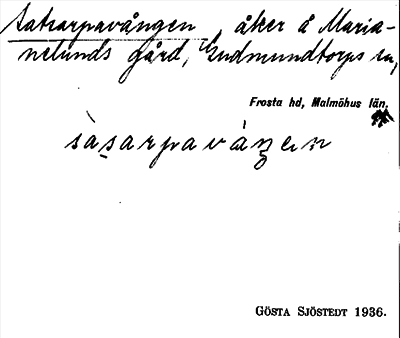 Satsarpavången, åker å Maria-
nelunds gård, Gudmundtorps sn,
Frosta hd, Malmöhus län.
sàsarpaván̡en
GÖSTA SJÖSTEDT 1936.